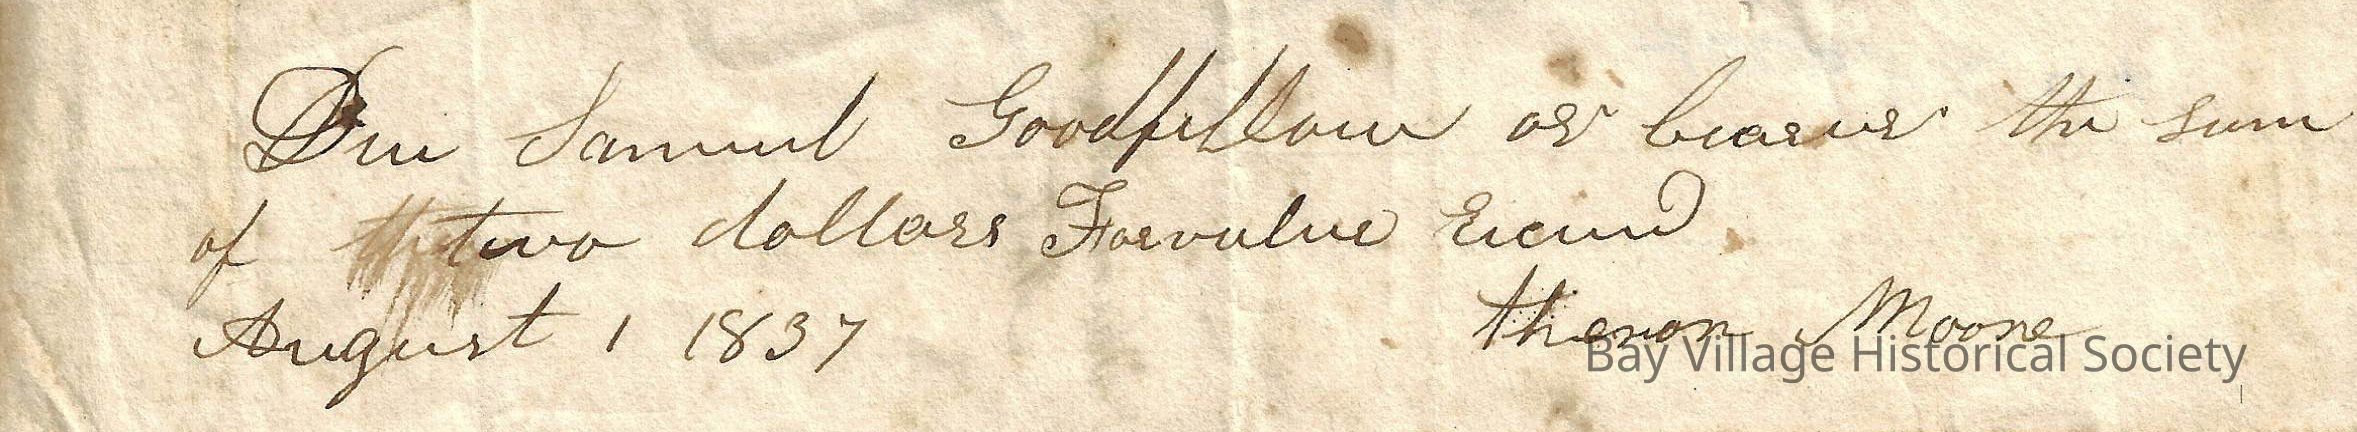 Due Samuel Goodfellow or bearer the sum
of two dollars For value Recivd
August 1 1837 theron Moore
Bay Village Historical Society